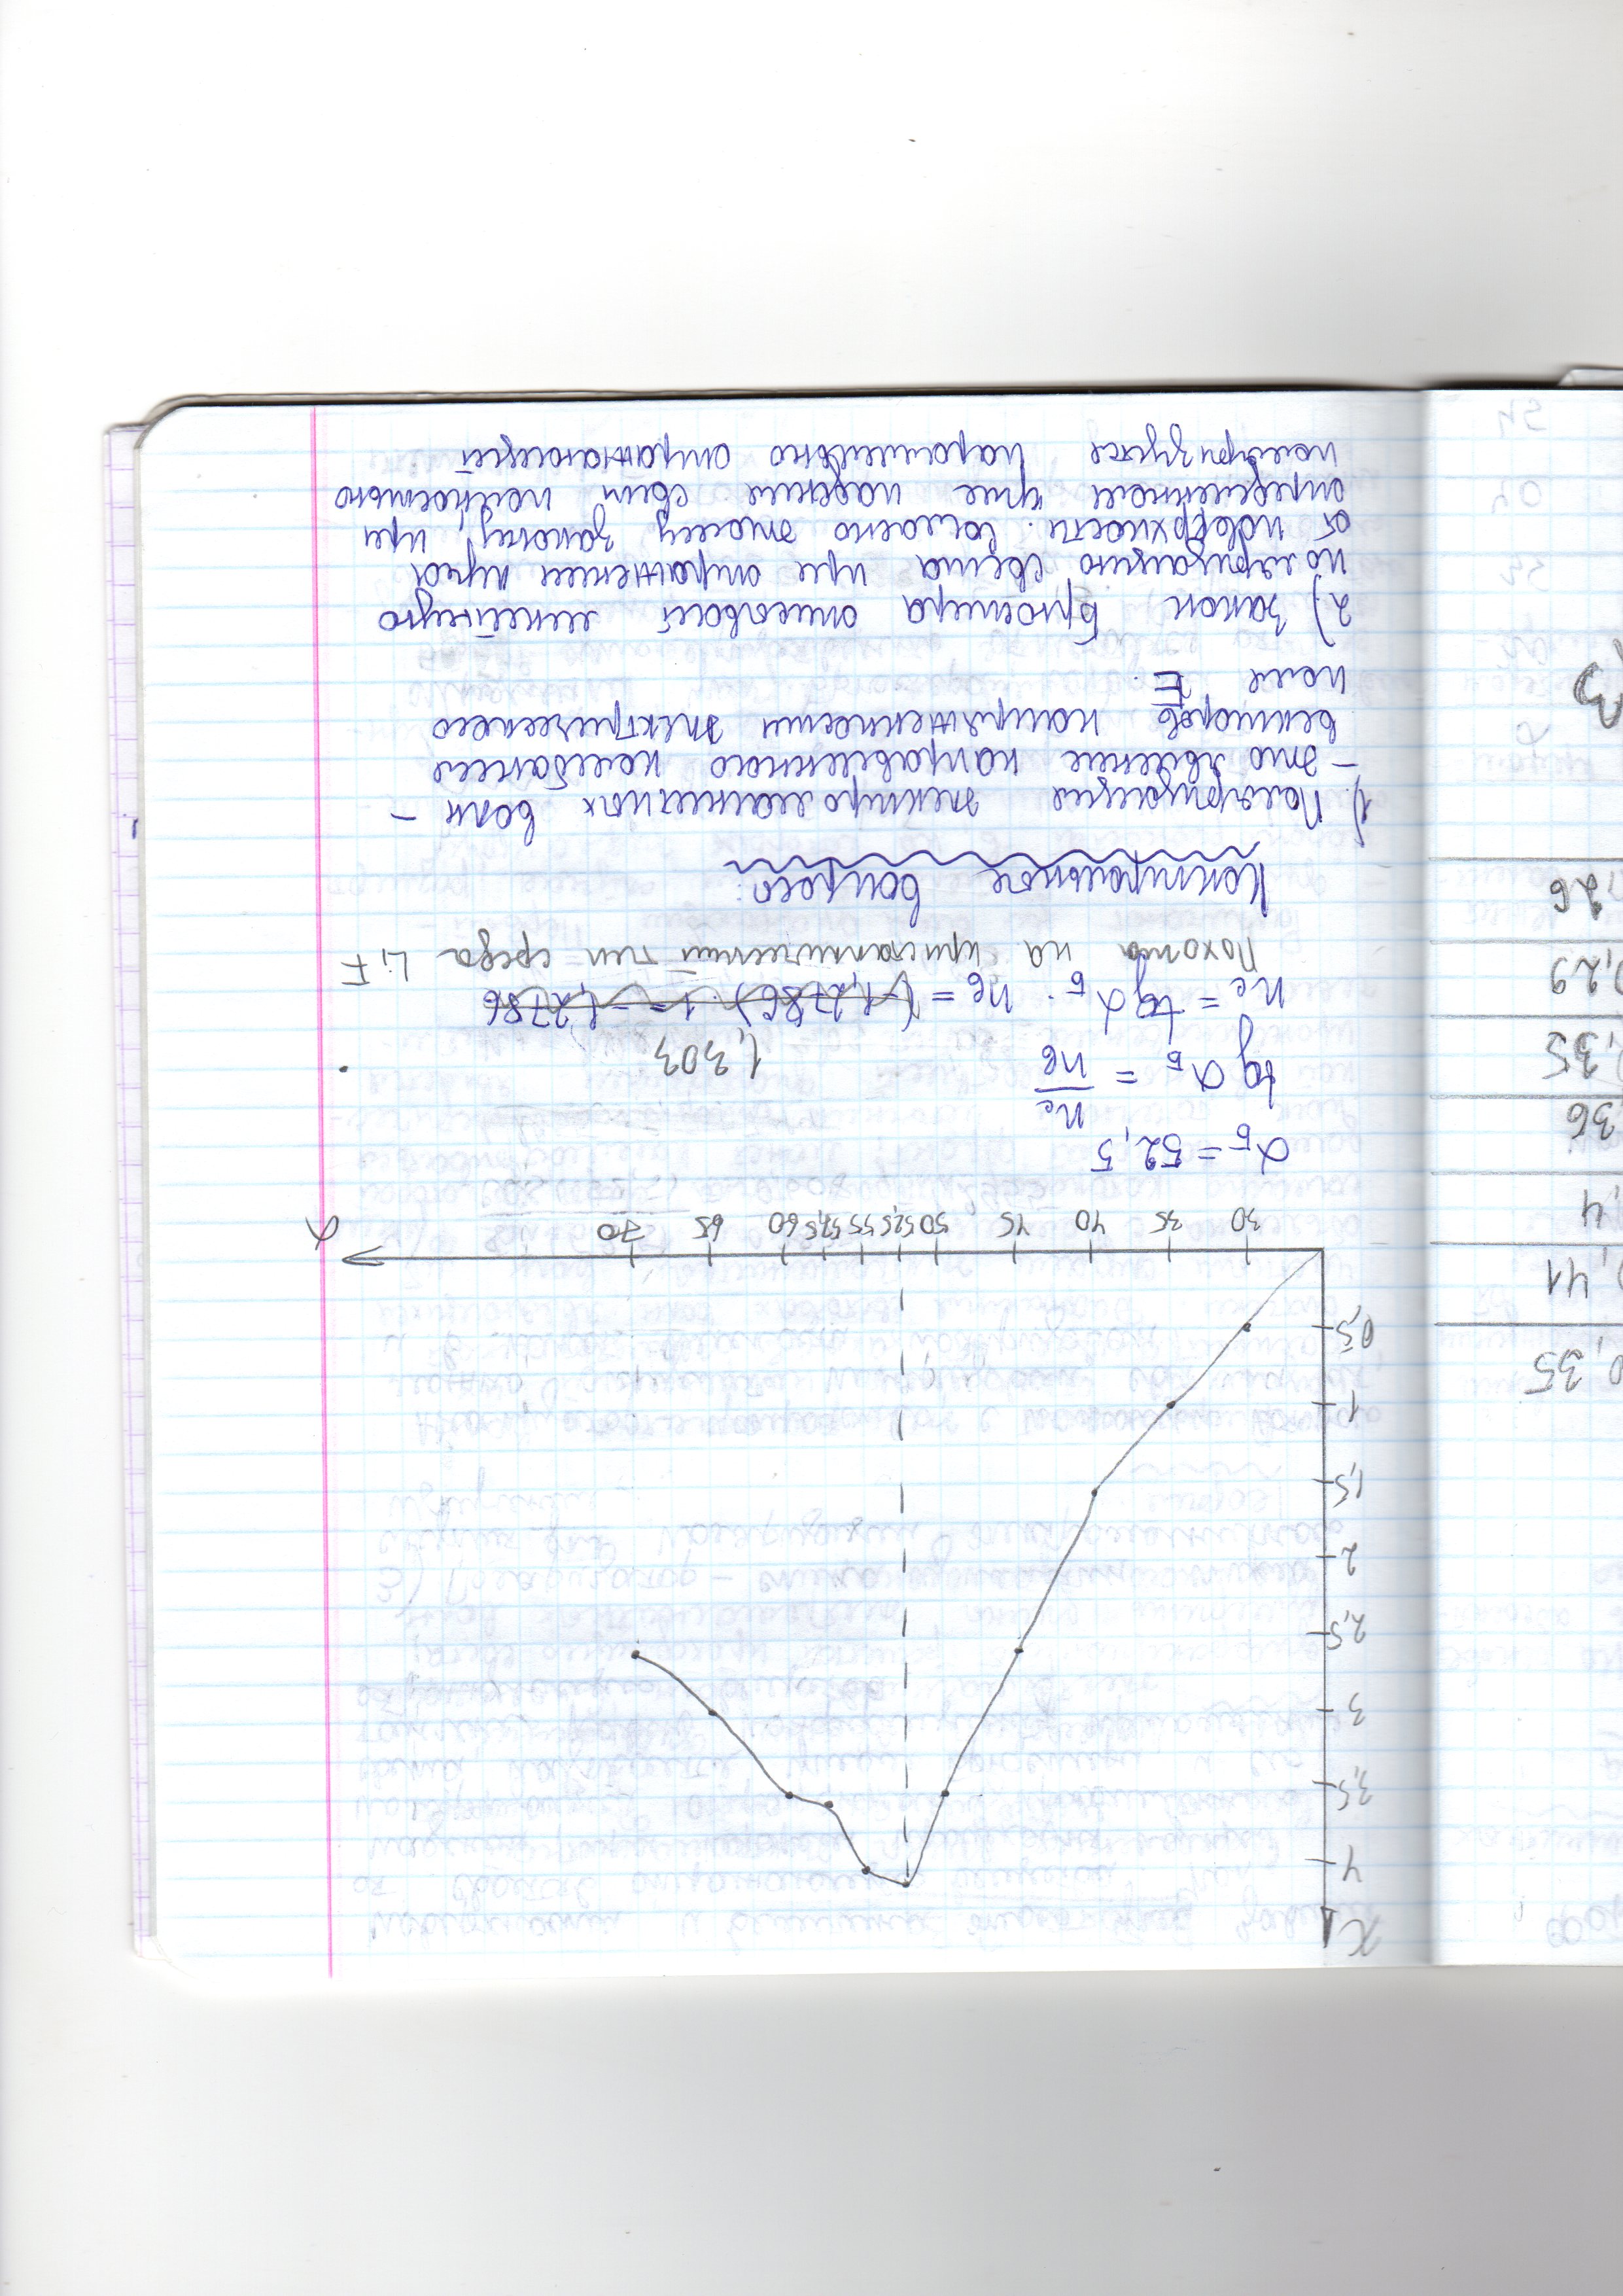 0,35
0,41
,4
,36
,35
0,29
,26
3
X
4
3,5
3
2,5
2
1,5
1
0,5
30 35 40 45 50 52,5 55 57,5 60 65 70
α
α_Б = 52,5
tg α_Б = n_c / n_в
1,303
n_c = tg α_Б · n_в = (-1,2786) · 1 = -1,2786
Похожа на кристаллический тип среда LiF
Контрольные вопросы:
1) Поляризация электромагнитных волн –
– это явление направленного колебания
векторов напряженности электрического
поля E.
2) Закон Брюстера описывает линейную
поляризацию света при отражении луча
от поверхности. Согласно этому закону, при
определенном угле падения свет полностью
поляризуется параллельно отражающей